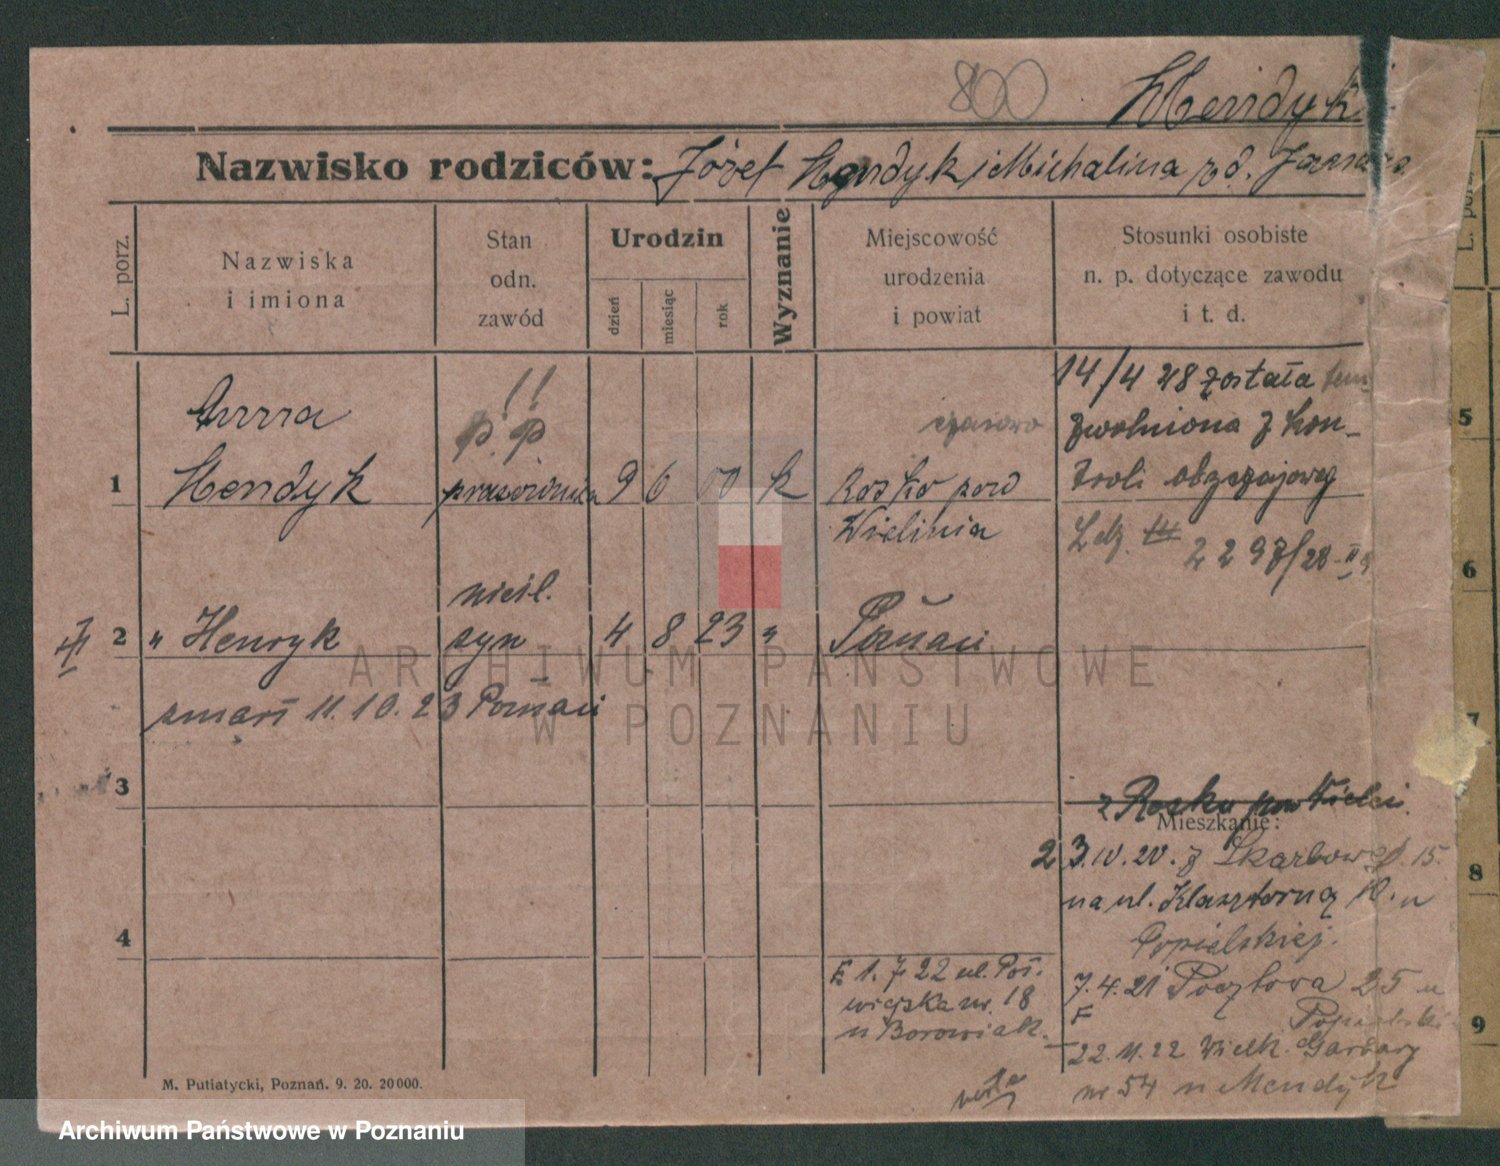 800
Mendyk
Nazwisko rodziców: Józef Mendyk i Michalina
L. porz.
Nazwiska
i imiona
Stan
odn.
zawód
Urodzin
dzień
miesiąc
rok
Wyznanie
Miejscowość
urodzenia
i powiat
Stosunki osobiste
n. p. dotyczące zawodu
i t. d.
1
Anna
Mendyk
!!
p. p.
9 6 00 k
czasowo
Rosko pow
14/4 28 została
zwolniona z kon-
troli obyczajowej
2
" Henryk
nieśl.
syn
4 8 23 "
Poznań
zmarł 11.10.23 Poznań
3
4
z Rosku pow Wieleń.
Mieszkanie:
23.IV.20. z Skarbowej 15.
na ul. Klasztorną 10. u
Popielskiej.
7.4.21 Pocztowa 25 u
22.11.22 Wielk. Garbary
nr 54 u Mendyk
1.7.22 ul. Pół.
wiejska nr. 18
u Borowiak.
verte
M. Putiatycki, Poznań. 9. 20. 20 000.
L. porz.
5
6
7
8
9
ARCHIWUM PAŃSTWOWE
W POZNANIU
Archiwum Państwowe w Poznaniu